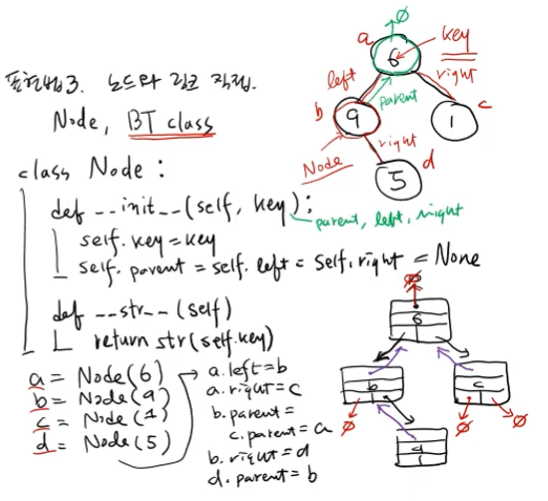 표현법3. 노드와 링크 직접.
Node, BT class
class Node :
def __init__(self, key):
parent, left, right
self.key = key
self.parent = self.left = self.right = None
def __str__(self)
return str(self.key)
a = Node(6)
b = Node(9)
c = Node(1)
d = Node(5)
a.left = b
a.right = c
b.parent =
c.parent = a
b.right = d
d.parent = b
∅
a
6
key
left
right
parent
b
9
c
1
right
Node
5
d
∅
6
b
c
∅
∅
∅
d